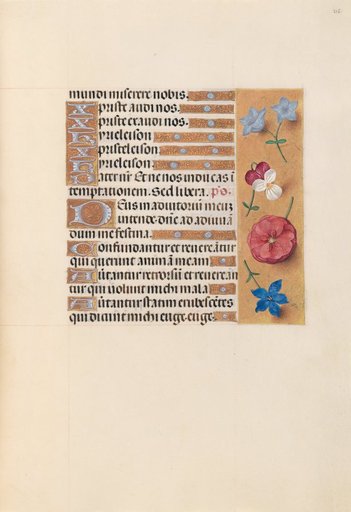 mundi miserere nobis.
Xpriste audi nos.
Xpriste exaudi nos.
Kyrieleison
Xpristeleison
Kyrieleison
Pater nr Et ne nos inducas ī
temptationem. Sed libera. ps.
Deus in adiutoriū meuz
intende dn̄e ad adiuuā
dum me festina.
Confundantur et reuereātur
qui querunt animā meam
Auertantur retrorsū et reuereān
tur qui uolunt michi mala
Auertantur statim erubescētes
qui dicunt michi euge euge.